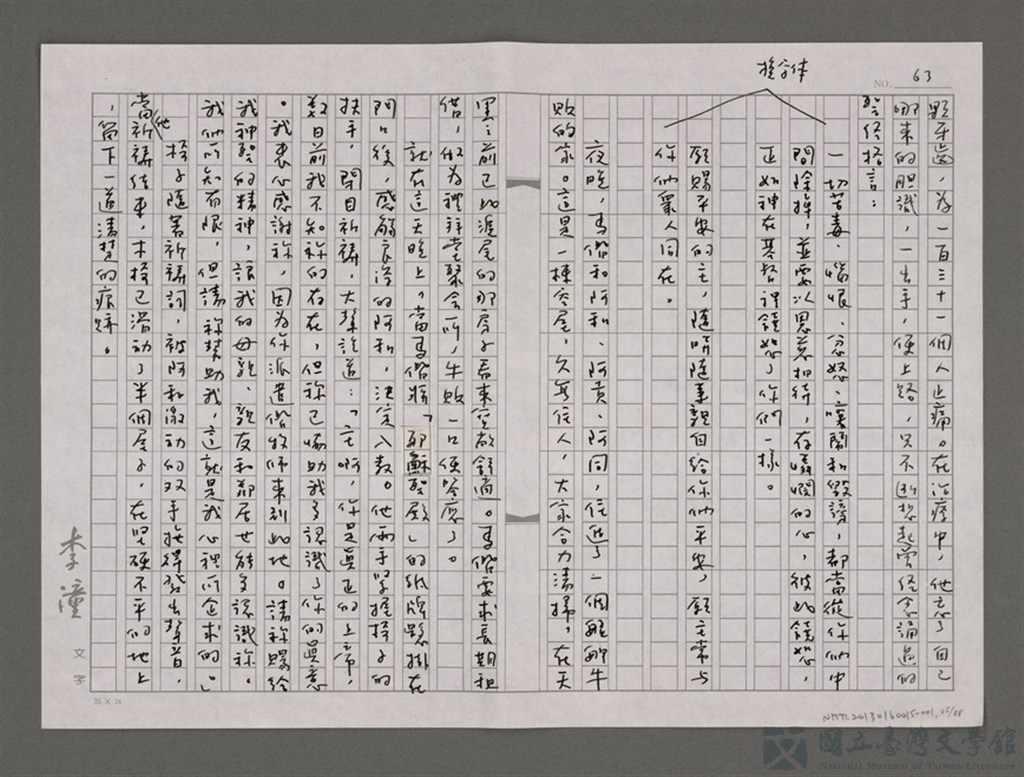 NO. 63
楷字体
顆牙齒，為一百三十一個人止痛。在治療中，他忘了自己
哪來的胆識，一出手，便上路，只不断想起曾经念誦過的
聖经格言：
一切苦毒、惱恨、忿怒、嚷鬧和毀謗，都當從你们中
間除掉，並要以恩慈相待，存憐憫的心，彼此饒恕，
正如神在基督裡饒恕了你們一樣。
願賜平安的主，隨時隨事親自給你们平安，願主常与
你们眾人同在。
夜晚，馬偕和阿和、阿貴、阿同，住進了一個離那牛
販的家。這是一棟空屋，久無住人，大家合力清掃，在天
黑之前已比漏屋的那房子看來寬敞舒適。馬偕要求長期租
借，做为禮拜堂聚會所，牛販一口便答應了。
就在這天晚上。當馬偕將「耶穌聖殿」的紙牌懸掛在
門口後，感動良深的阿和，決定入教。他兩手緊握椅子的
扶手，閉目祈禱，大聲說道：「主啊，你是真正的上帝，
數日前我不知祢的存在，但祢已協助我了認識了你的真意
。我衷心感謝祢，因为你派遣偕牧师來到此地。請祢賜給
我神聖的精神，讓我的母親、親友和鄰居也能多認識祢。
我们所知有限，但請祢幫助我，這就是我心裡所企求的。」
椅子隨著祈禱詞，被阿和激动的双手搖得發出聲音，
當他祈禱结束，木椅已滑动了半個屋子，在堅硬不平的地上
，留下一道清楚的痕跡。
李潼 文字
25 × 24
NMTL20130160015-001, 25/88
國立臺灣文學館
National Museum of Taiwan Literature